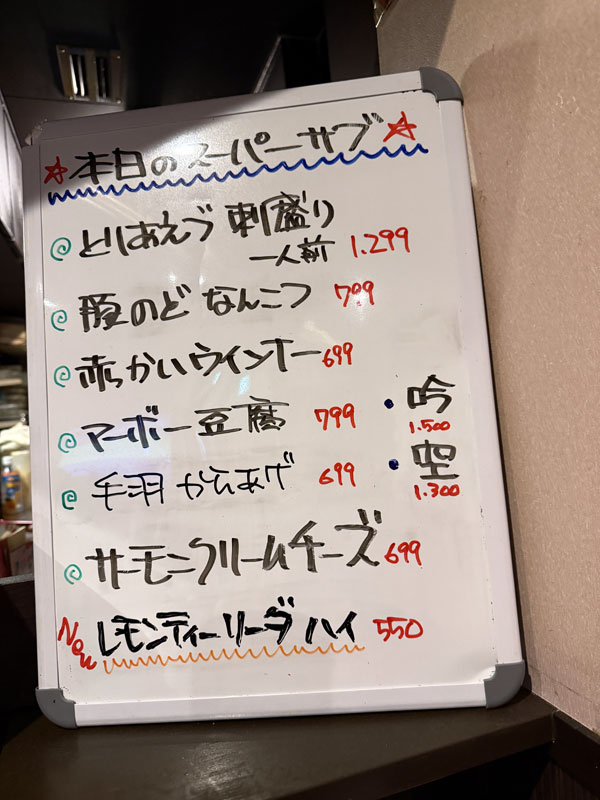 ☆本日のスーパーサブ☆
とりあえず 刺盛り
一人前 1.299
豚のど なんこつ 799
赤っかいウインナー 699
マーボー豆腐 799
・吟
1.500
手羽 からあげ 699
・空
1.300
サーモンクリームチーズ 699
New レモンティーリーブハイ 550